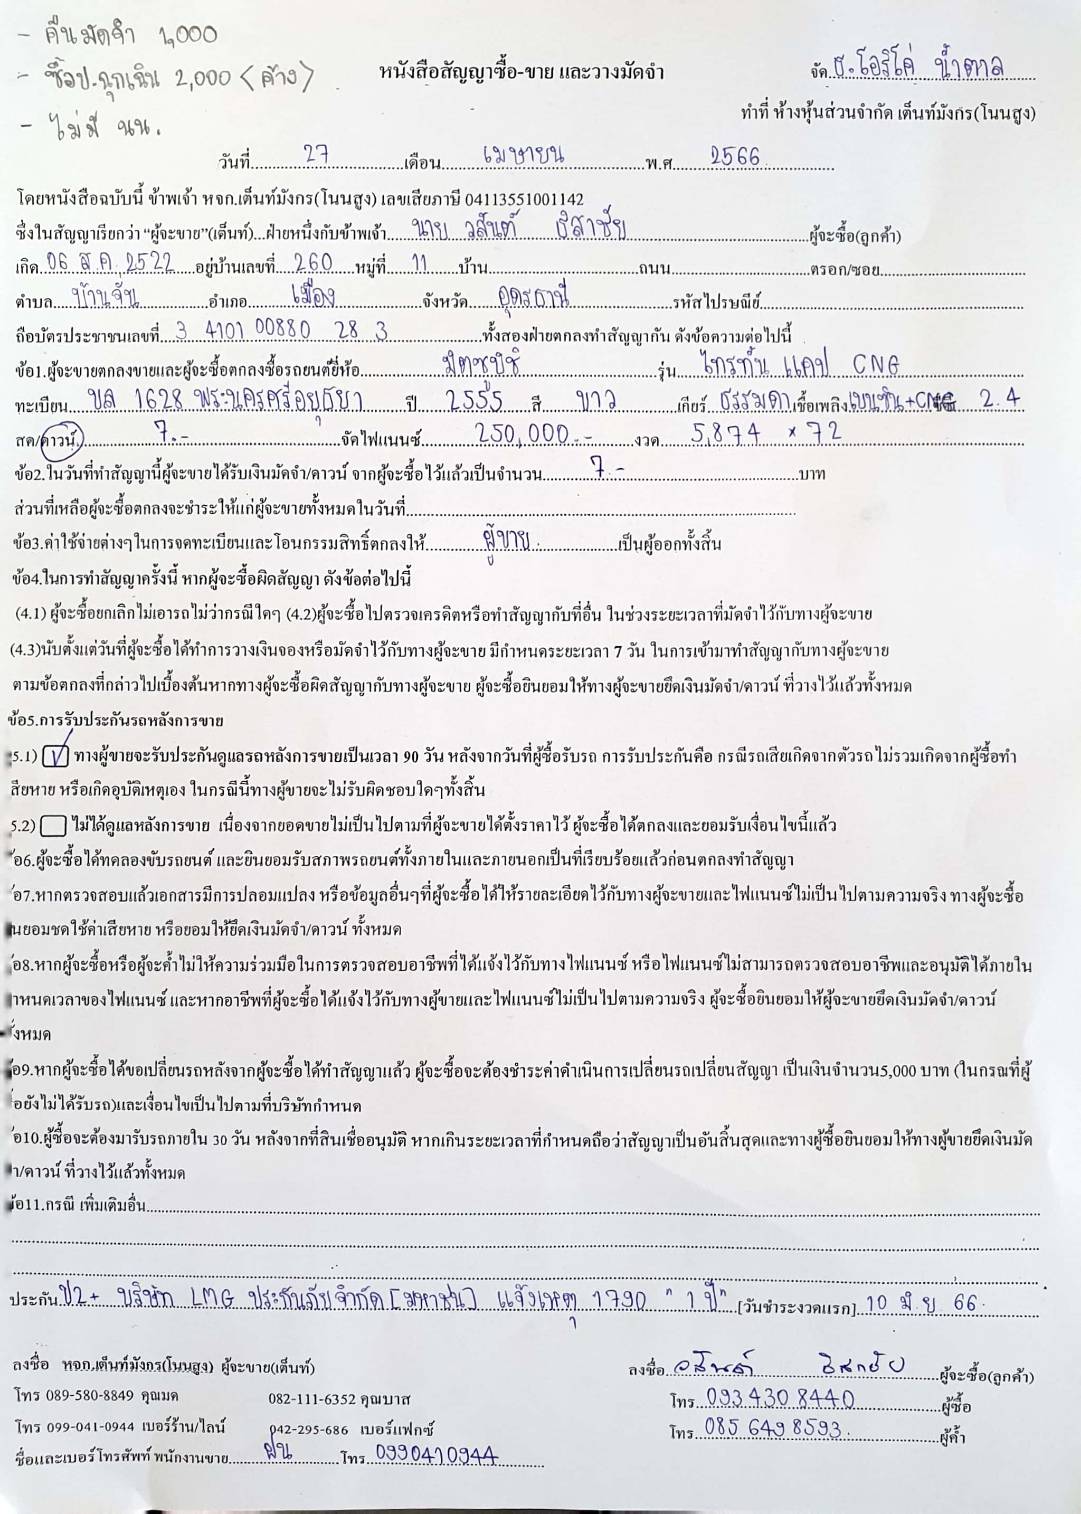 - คืนมัดจำ 1,000
- ซื้อป.ฉุกเฉิน 2,000 <ค้าง>
- ไม่มี นน.
หนังสือสัญญาซื้อ-ขาย และวางมัดจำ
จัด ธ.โอริโค่ น้ำตาล
ทำที่ ห้างหุ้นส่วนจำกัด เต็นท์มังกร(โนนสูง)
วันที่ 27 เดือน เมษายน พ.ศ 2566
โดยหนังสือฉบับนี้ ข้าพเจ้า หจก.เต็นท์มังกร(โนนสูง) เลขเสียภาษี 04113551001142
ซึ่งในสัญญาเรียกว่า “ผู้จะขาย”(เต็นท์)...ฝ่ายหนึ่งกับข้าพเจ้า นาย วสันต์ ธิสาชัย ผู้จะซื้อ(ลูกค้า)
เกิด 06 ส.ค. 2522 อยู่บ้านเลขที่ 260 หมู่ที่ 11 บ้าน ถนน ตรอก/ซอย
ตำบล บ้านจั่น อำเภอ เมือง จังหวัด อุดรธานี รหัสไปรษณีย์
ถือบัตรประชาชนเลขที่ 3 4101 00880 28 3 ทั้งสองฝ่ายตกลงทำสัญญากัน ดังข้อความต่อไปนี้
ข้อ1.ผู้จะขายตกลงขายและผู้จะซื้อตกลงซื้อรถยนต์ยี่ห้อ มิตซูบิชิ รุ่น ไทรทัน แคป CNG
ทะเบียน บล 1628 พระนครศรีอยุธยา ปี 2555 สี ขาว เกียร์ ธรรมดา เชื้อเพลิง เบนซิน+CNG 2.4
สด/ดาวน์ 7.- จัดไฟแนนซ์ 250,000.- งวด 5,874 x 72
ข้อ2.ในวันที่ทำสัญญานี้ผู้จะขายได้รับเงินมัดจำ/ดาวน์ จากผู้จะซื้อไว้แล้วเป็นจำนวน 7.- บาท
ส่วนที่เหลือผู้จะซื้อตกลงจะชำระให้แก่ผู้จะขายทั้งหมดในวันที่
ข้อ3.ค่าใช้จ่ายต่างๆในการจดทะเบียนและโอนกรรมสิทธิ์ตกลงให้ ผู้ขาย เป็นผู้ออกทั้งสิ้น
ข้อ4.ในการทำสัญญาครั้งนี้ หากผู้จะซื้อผิดสัญญา ดังข้อต่อไปนี้
(4.1) ผู้จะซื้อยกเลิกไม่เอารถไม่ว่ากรณีใดๆ (4.2)ผู้จะซื้อไปตรวจเครดิตหรือทำสัญญากับที่อื่น ในช่วงระยะเวลาที่มัดจำไว้กับทางผู้จะขาย
(4.3)นับตั้งแต่วันที่ผู้จะซื้อได้ทำการวางเงินจองหรือมัดจำไว้กับทางผู้จะขาย มีกำหนดระยะเวลา 7 วัน ในการเข้ามาทำสัญญากับทางผู้จะขาย
ตามข้อตกลงที่กล่าวไปเบื้องต้นหากทางผู้จะซื้อผิดสัญญากับทางผู้จะขาย ผู้จะซื้อยินยอมให้ทางผู้จะขายยึดเงินมัดจำ/ดาวน์ ที่วางไว้แล้วทั้งหมด
ข้อ5.การรับประกันรถหลังการขาย
5.1) ทางผู้ขายจะรับประกันดูแลรถหลังการขายเป็นเวลา 90 วัน หลังจากวันที่ผู้ซื้อรับรถ การรับประกันคือ กรณีรถเสียเกิดจากตัวรถไม่รวมเกิดจากผู้ซื้อทำ
สียหาย หรือเกิดอุบัติเหตุเอง ในกรณีนี้ทางผู้ขายจะไม่รับผิดชอบใดๆทั้งสิ้น
5.2) ไม่ได้ดูแลหลังการขาย เนื่องจากยอดขายไม่เป็นไปตามที่ผู้จะขายได้ตั้งราคาไว้ ผู้จะซื้อได้ตกลงและยอมรับเงื่อนไขนี้แล้ว
อ6.ผู้จะซื้อได้ทดลองขับรถยนต์ และยินยอมรับสภาพรถยนต์ทั้งภายในและภายนอกเป็นที่เรียบร้อยแล้วก่อนตกลงทำสัญญา
อ7.หากตรวจสอบแล้วเอกสารมีการปลอมแปลง หรือข้อมูลอื่นๆที่ผู้จะซื้อได้ให้รายละเอียดไว้กับทางผู้จะขายและไฟแนนซ์ไม่เป็นไปตามความจริง ทางผู้จะซื้อ
นยอมชดใช้ค่าเสียหาย หรือยอมให้ยึดเงินมัดจำ/ดาวน์ ทั้งหมด
อ8.หากผู้จะซื้อหรือผู้จะค้ำไม่ให้ความร่วมมือในการตรวจสอบอาชีพที่ได้แจ้งไว้กับทางไฟแนนซ์ หรือไฟแนนซ์ไม่สามารถตรวจสอบอาชีพและอนุมัติได้ภายใน
ำหนดเวลาของไฟแนนซ์ และหากอาชีพที่ผู้จะซื้อได้แจ้งไว้กับทางผู้ขายและไฟแนนซ์ไม่เป็นไปตามความจริง ผู้จะซื้อยินยอมให้ผู้จะขายยึดเงินมัดจำ/ดาวน์
ั้งหมด
อ9.หากผู้จะซื้อได้ขอเปลี่ยนรถหลังจากผู้จะซื้อได้ทำสัญญาแล้ว ผู้จะซื้อจะต้องชำระค่าดำเนินการเปลี่ยนรถเปลี่ยนสัญญา เป็นเงินจำนวน5,000 บาท (ในกรณที่ผู้
อยังไม่ได้รับรถ)และเงื่อนไขเป็นไปตามที่บริษัทกำหนด
อ10.ผู้ซื้อจะต้องมารับรถภายใน 30 วัน หลังจากที่สินเชื่ออนุมัติ หากเกินระยะเวลาที่กำหนดถือว่าสัญญาเป็นอันสิ้นสุดและทางผู้ซื้อยินยอมให้ทางผู้ขายยึดเงินมัด
ำ/ดาวน์ ที่วางไว้แล้วทั้งหมด
้อ11.กรณี เพิ่มเติมอื่น
ประกัน ป2+ บริษัท LMG ประกันภัย จำกัด [มหาชน] แจ้งเหตุ 1790 "1 ปี" [วันชำระงวดแรก] 10 มิ.ย 66.
ลงชื่อ หจก.เต็นท์มังกร(โนนสูง) ผู้จะขาย(เต็นท์)
ลงชื่อ วสันต์ ธิสาชัย ผู้จะซื้อ(ลูกค้า)
โทร 089-580-8849 คุณมด 082-111-6352 คุณบาส
โทร 093 430 8440 ผู้ซื้อ
โทร 099-041-0944 เบอร์ร้าน/ไลน์ 042-295-686 เบอร์แฟกซ์
โทร 085 649 8593. ผู้ค้ำ
ชื่อและเบอร์โทรศัพท์ พนักงานขาย ฝน โทร 0990410944